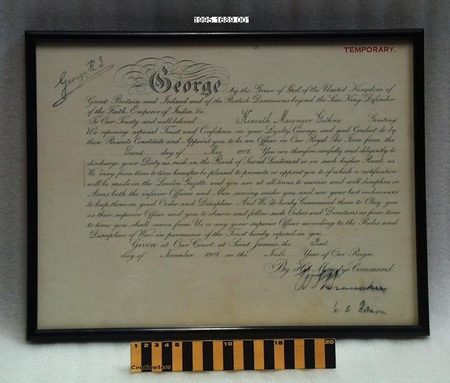 1995.1689.001
TEMPORARY.
George R.I.
George by the Grace of God of the United Kingdom of
Great Britain and Ireland and of the British Dominions beyond the Seas King Defender
of the Faith, Emperor of India &c.
To Our Trusty and well beloved Kenneth Guthrie Greeting
We reposing especial Trust and Confidence in your Loyalty Courage and good Conduct do by
these Presents Constitute and Appoint you to be an Officer in Our Royal Air Force from the
day of 1918. You are therefore carefully and diligently to
discharge your Duty as such in the Rank of Second Lieutenant or in such higher Rank as
We may from time to time hereafter be pleased to promote or appoint you to of which a notification
will be made in the London Gazette and you are at all times to exercise and well discipline in
Arms both the inferior Officers and Men serving under you and use your best endeavours
to keep them in good Order and Discipline. And We do hereby Command them to Obey you
as their superior Officer and you to observe and follow such Orders and Directions as from time
to time you shall receive from Us or any your superior Officer according to the Rules and
Discipline of War in pursuance of the Trust hereby reposed in you.
Given at Our Court, at Saint James's the
day of November 1918 in the Ninth Year of Our Reign
By His Majesty's Command
1 2 3 4 5 10 15 20
Centimeters